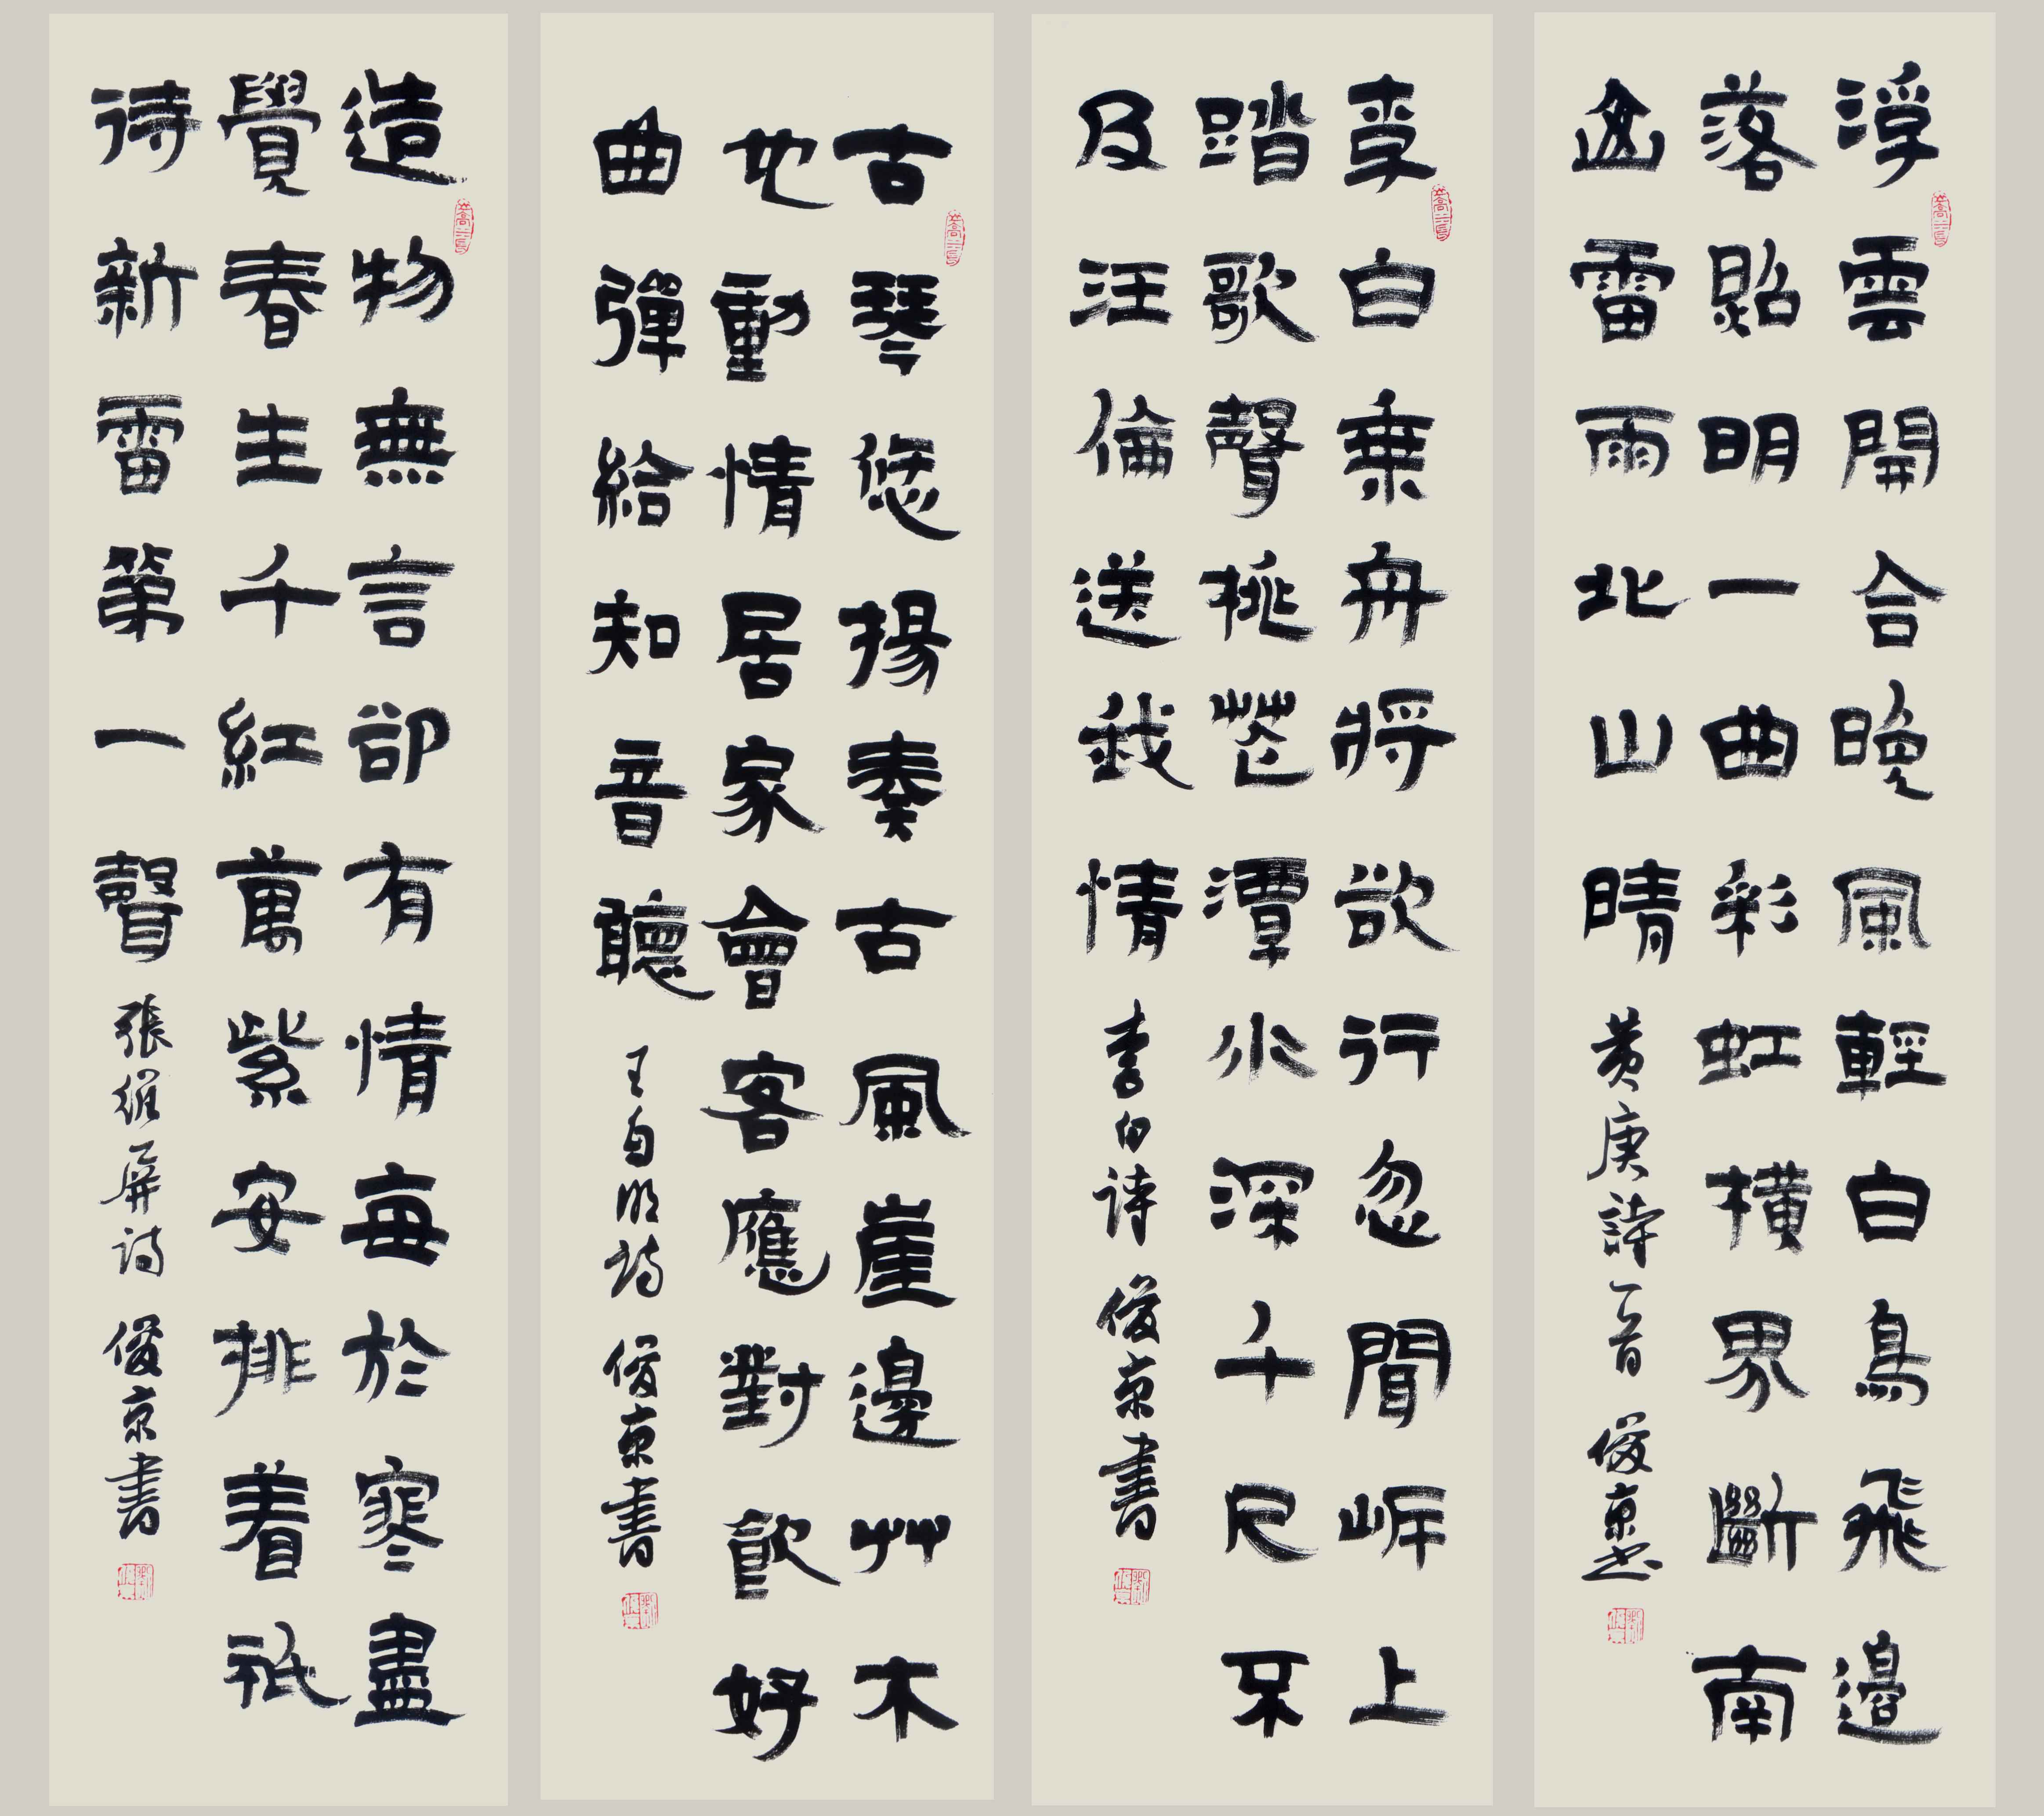 浮雲開合晚風輕白鳥飛邊
落照明一曲彩虹橫界斷南
雷雨北山晴 黄庚詩一首 俊京书
李白乘舟將欲行忽聞岸上
踏歌聲桃花潭水深千尺不
及汪倫送我情 李白诗 俊京書
古琴悠揚奏古風崖邊艸木
也動情居家會客應對飲好
曲彈給知音聽 王自明诗 俊京書
造物無言卻有情每於寒盡
覺春生千紅萬紫安排着祇
待新雷第一聲 張維屏诗 俊京書